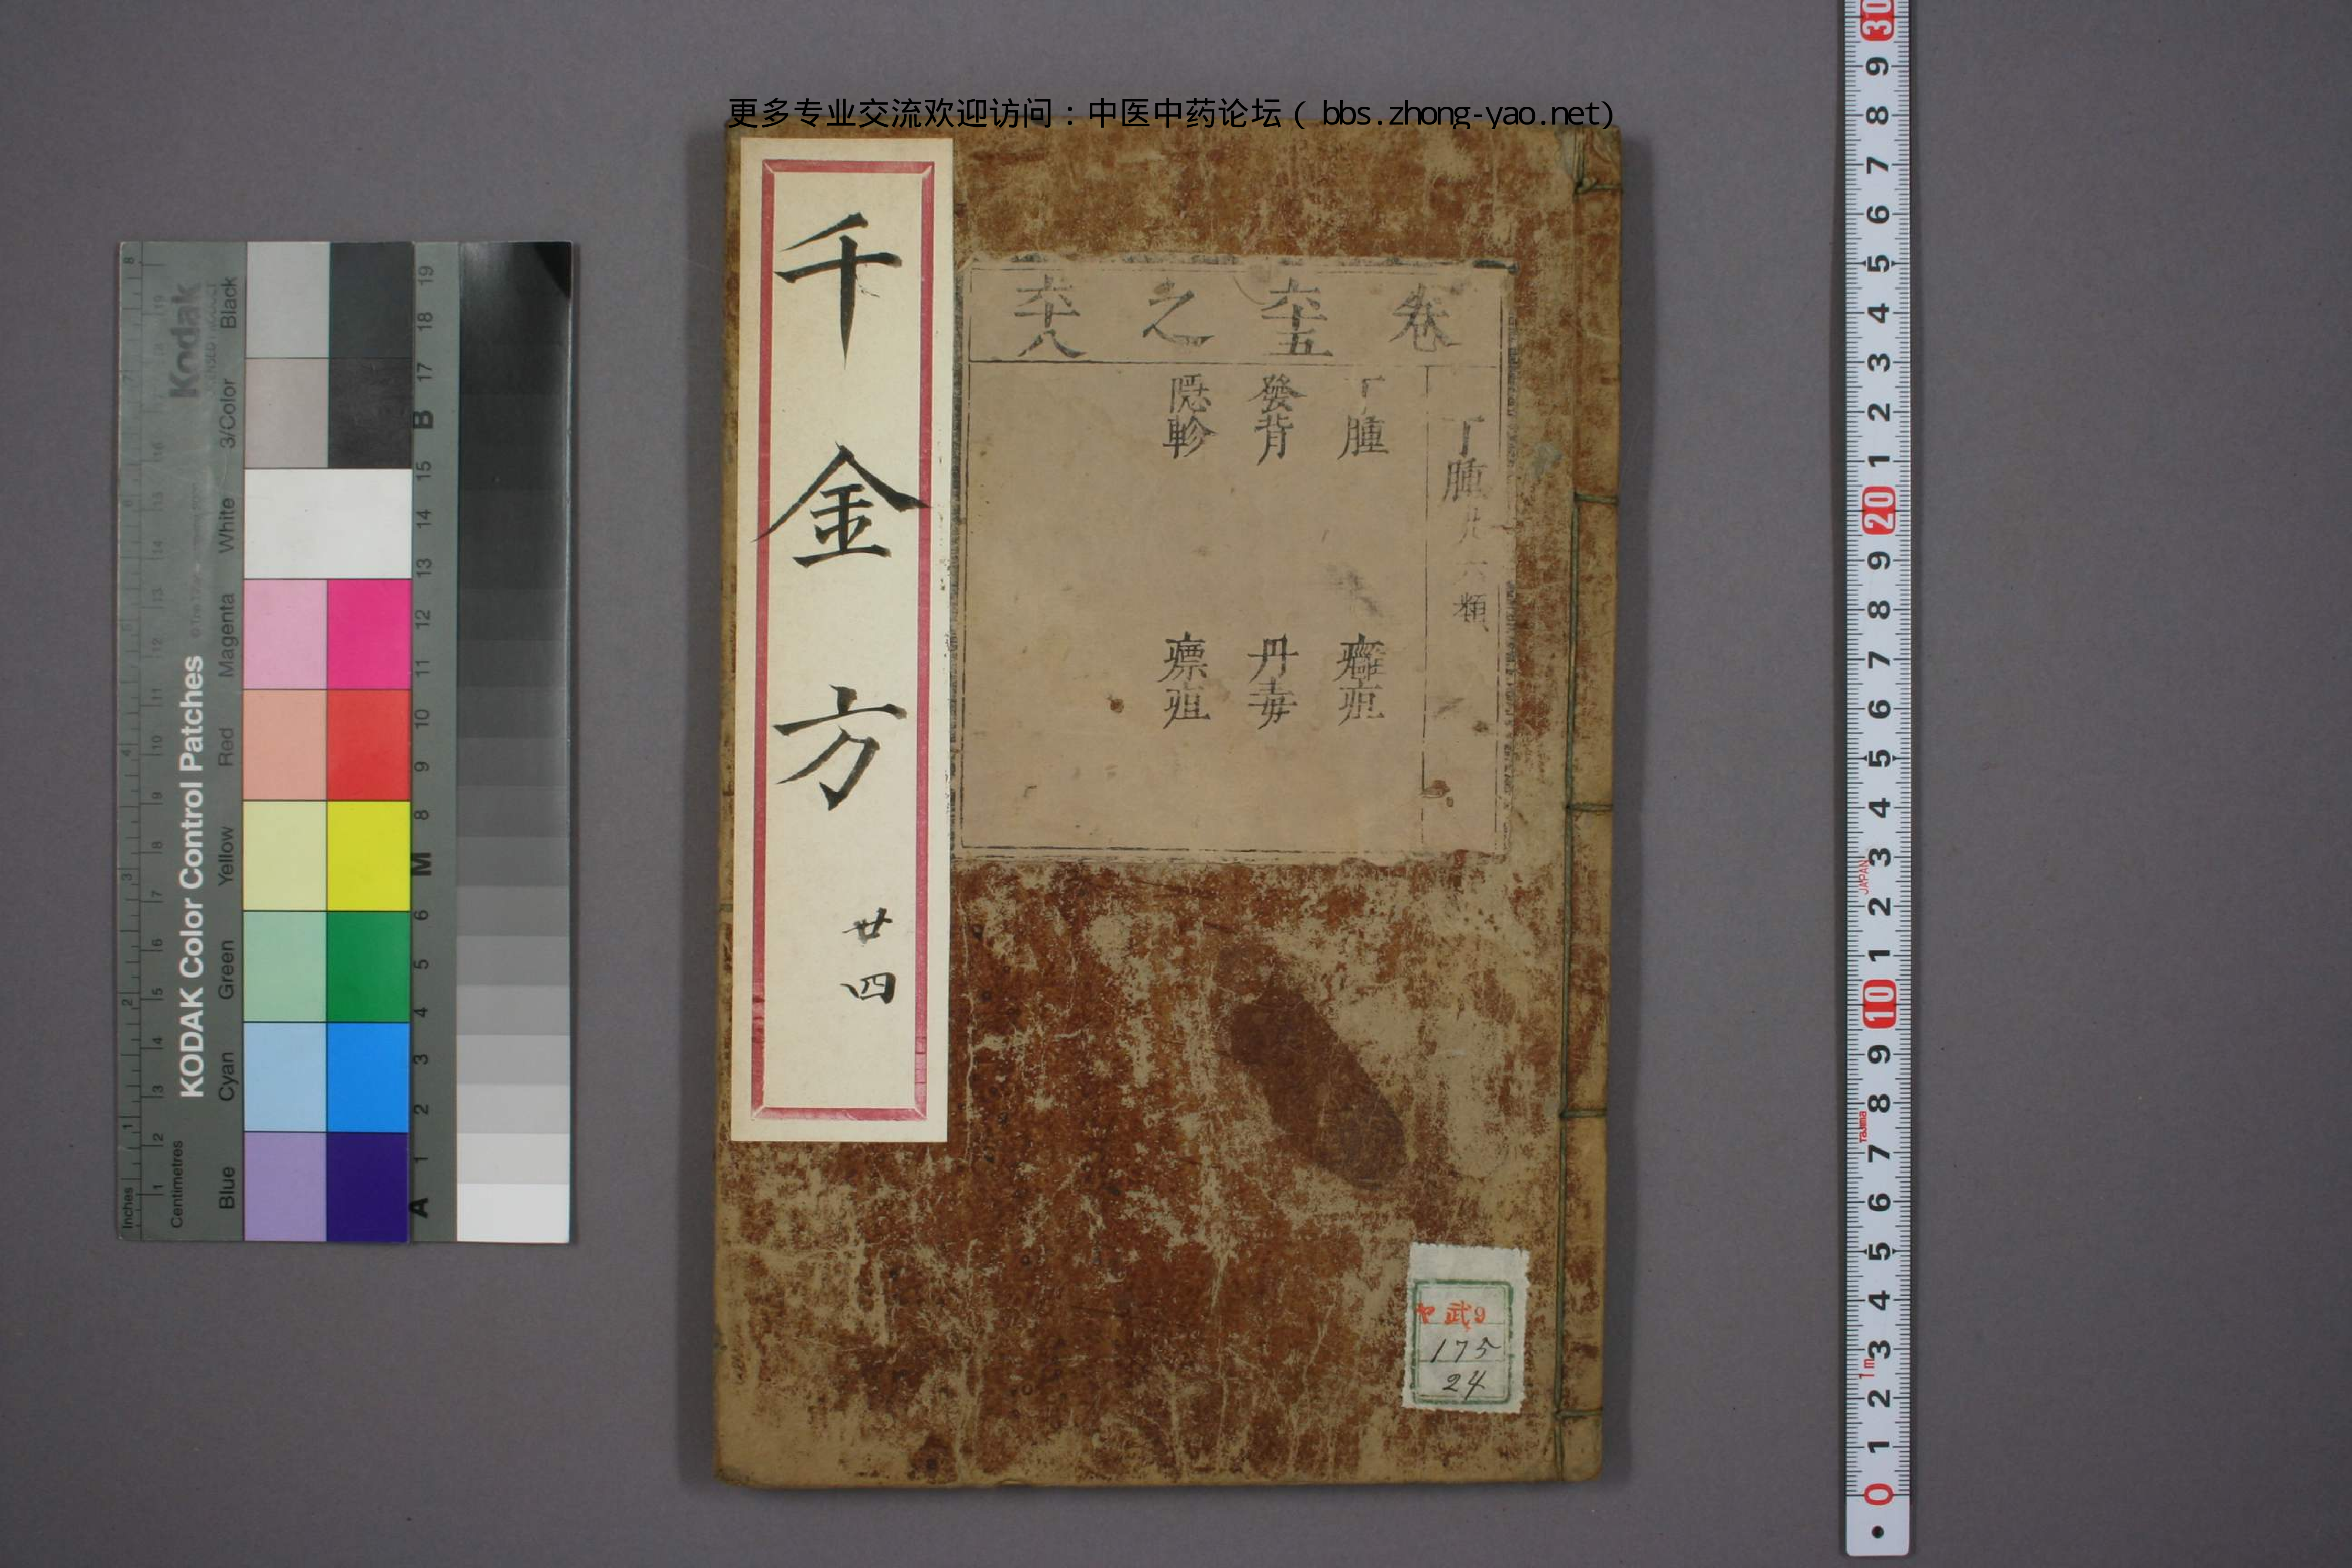 更多专业交流欢迎访问：中医中药论坛（bbs.zhong-yao.net）
千金方
廿四
卷六十五之六十八
丁腫凡六類
丁腫 癰疽
發背 丹毒
隱軫 瘭疽
ヤ武9
175
24
KODAK Color Control Patches
Kodak
Black
3/Color
White
Magenta
Red
Yellow
Green
Cyan
Blue
Inches
Centimetres
8
4
3
2
1
19
14
13
12
11
10
9
8
7
6
5
4
3
2
1
19
18
17
B
15
14
13
12
11
10
9
8
M
6
5
4
3
2
1
A
30
9
8
7
6
5
4
3
2
1
20
9
8
7
6
5
4
3
2
1
10
9
8
7
6
5
4
3
2
1
0
JAPAN
Tajima
1m